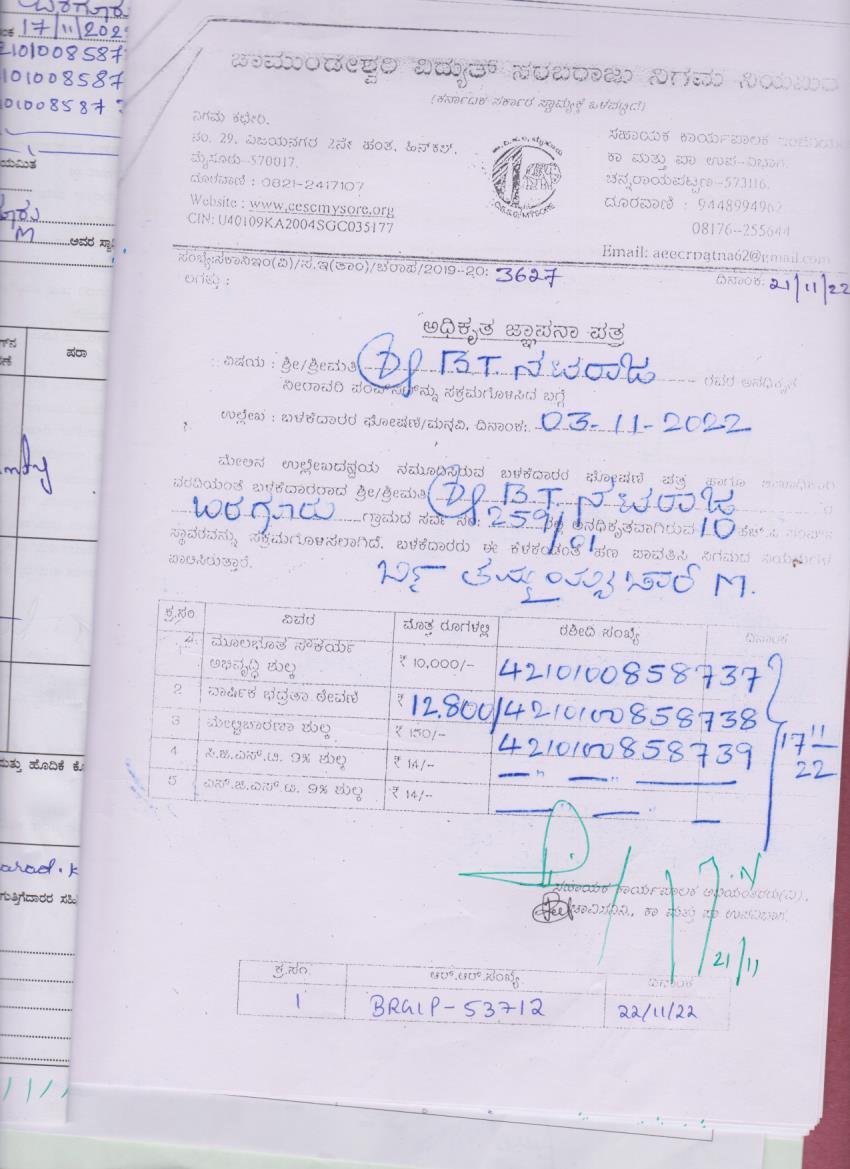 ಬರಗೂರು
17/11/202
2101008587
101008587
01008587
ಯಮಿತ
M
ಅವರ ಸ್ಥಾ
ಷರಾ
ಮತ್ತು ಹೊದಿಕೆ ಕೊ
ಗುತ್ತಿಗೆದಾರರ ಸಹಿ
ಚಾಮುಂಡೇಶ್ವರಿ ವಿದ್ಯುತ್ ಸರಬರಾಜು ನಿಗಮ ನಿಯಮಿತ
(ಕರ್ನಾಟಕ ಸರ್ಕಾರ ಸ್ವಾಮ್ಯಕ್ಕೆ ಒಳಪಟ್ಟಿದೆ)
ನಿಗಮ ಕಛೇರಿ,
ನಂ. 29, ವಿಜಯನಗರ 2ನೇ ಹಂತ, ಹಿನ್‌ಕಲ್,
ಮೈಸೂರು-570017.
ದೂರವಾಣಿ : 0821-2417107
Website : www.cescmysore.org
CIN: U40109KA2004SGC035177
C.E.S.C. MYSORE
ಸಹಾಯಕ ಕಾರ್ಯಪಾಲಕ ಇಂಜಿನಿಯರ
ಕಾ ಮತ್ತು ಪಾ ಉಪ-ವಿಭಾಗ,
ಚನ್ನರಾಯಪಟ್ಟಣ-573116.
ದೂರವಾಣಿ : 9448994962
08176-255644
Email: aeecrpatna62@gmail.com
ಸಂಖ್ಯೆ:ಸಕಾನಿಇಂ(ವಿ)/ಸ.ಇ(ತಾಂ)/ಚರಾಪ/2019-20: 3627
ದಿನಾಂಕ: 21/11/22
ಲಗತ್ತು :
ಅಧಿಕೃತ ಜ್ಞಾಪನಾ ಪತ್ರ
ವಿಷಯ : ಶ್ರೀ/ಶ್ರೀಮತಿ B.T. ನಟರಾಜ ರವರ ಅನಧಿಕೃತ
ನೀರಾವರಿ ಪಂಪ್‌ಸೆಟ್‌ನ್ನು ಸಕ್ರಮಗೊಳಿಸಿದ ಬಗ್ಗೆ
ಉಲ್ಲೇಖ : ಬಳಕೆದಾರರ ಘೋಷಣೆ/ಮನವಿ, ದಿನಾಂಕ: 03-11-2022
ಮೇಲಿನ ಉಲ್ಲೇಖದನ್ವಯ ನಮೂದಿಸಿರುವ ಬಳಕೆದಾರರ ಘೋಷಣೆ ಪತ್ರ ಹಾಗೂ
ವರದಿಯಂತೆ ಬಳಕೆದಾರರಾದ ಶ್ರೀ/ಶ್ರೀಮತಿ B.T. ನಟರಾಜ ರ
ಬರಗೂರು ಗ್ರಾಮದ ಸರ್ವೆ ನಂ: 259/101 ರಲ್ಲಿ ಅನಧಿಕೃತವಾಗಿರುವ 10 ಹೆಚ್.ಪಿ ಪಂಪ್‌ಸೆಟ್
ಸ್ಥಾವರವನ್ನು ಸಕ್ರಮಗೊಳಿಸಲಾಗಿದೆ. ಬಳಕೆದಾರರು ಈ ಕೆಳಕಂಡಂತೆ ಹಣ ಪಾವತಿಸಿ ನಿಗಮದ ನಿಯಮಗಳ
ಪಾಲಿಸಿರುತ್ತಾರೆ.
M.
ಕ್ರ.ಸಂ ವಿವರ ಮೊತ್ತ ರೂಗಳಲ್ಲಿ ರಶೀದಿ ಸಂಖ್ಯೆ ದಿನಾಂಕ
ಮೂಲಭೂತ ಸೌಕರ್ಯ
ಅಭಿವೃದ್ಧಿ ಶುಲ್ಕ ₹ 10,000/- 4210100858737
2 ವಾರ್ಷಿಕ ಭದ್ರತಾ ಠೇವಣಿ ₹ 12,800/ 4210100858738
3 ಮೇಲ್ವಿಚಾರಣಾ ಶುಲ್ಕ ₹ 150/- 4210100858739
17/11/22
4 ಸಿ.ಜಿ.ಎಸ್.ಟಿ. 9% ಶುಲ್ಕ ₹ 14/- — " — " —
5 ಎಸ್.ಜಿ.ಎಸ್.ಟಿ. 9% ಶುಲ್ಕ ₹ 14/-
ಸಹಾಯಕ ಕಾರ್ಯಪಾಲಕ ಅಭಿಯಂತರರು(ವಿ).,
ಚಾವಿಸನಿನಿ., ಕಾ ಮತ್ತು ಪಾ ಉಪವಿಭಾಗ,
21/11
ಕ್ರ.ಸಂ. ಆರ್.ಆರ್.ಸಂಖ್ಯೆ ದಿನಾಂಕ
1 BRGIP-53712 22/11/22